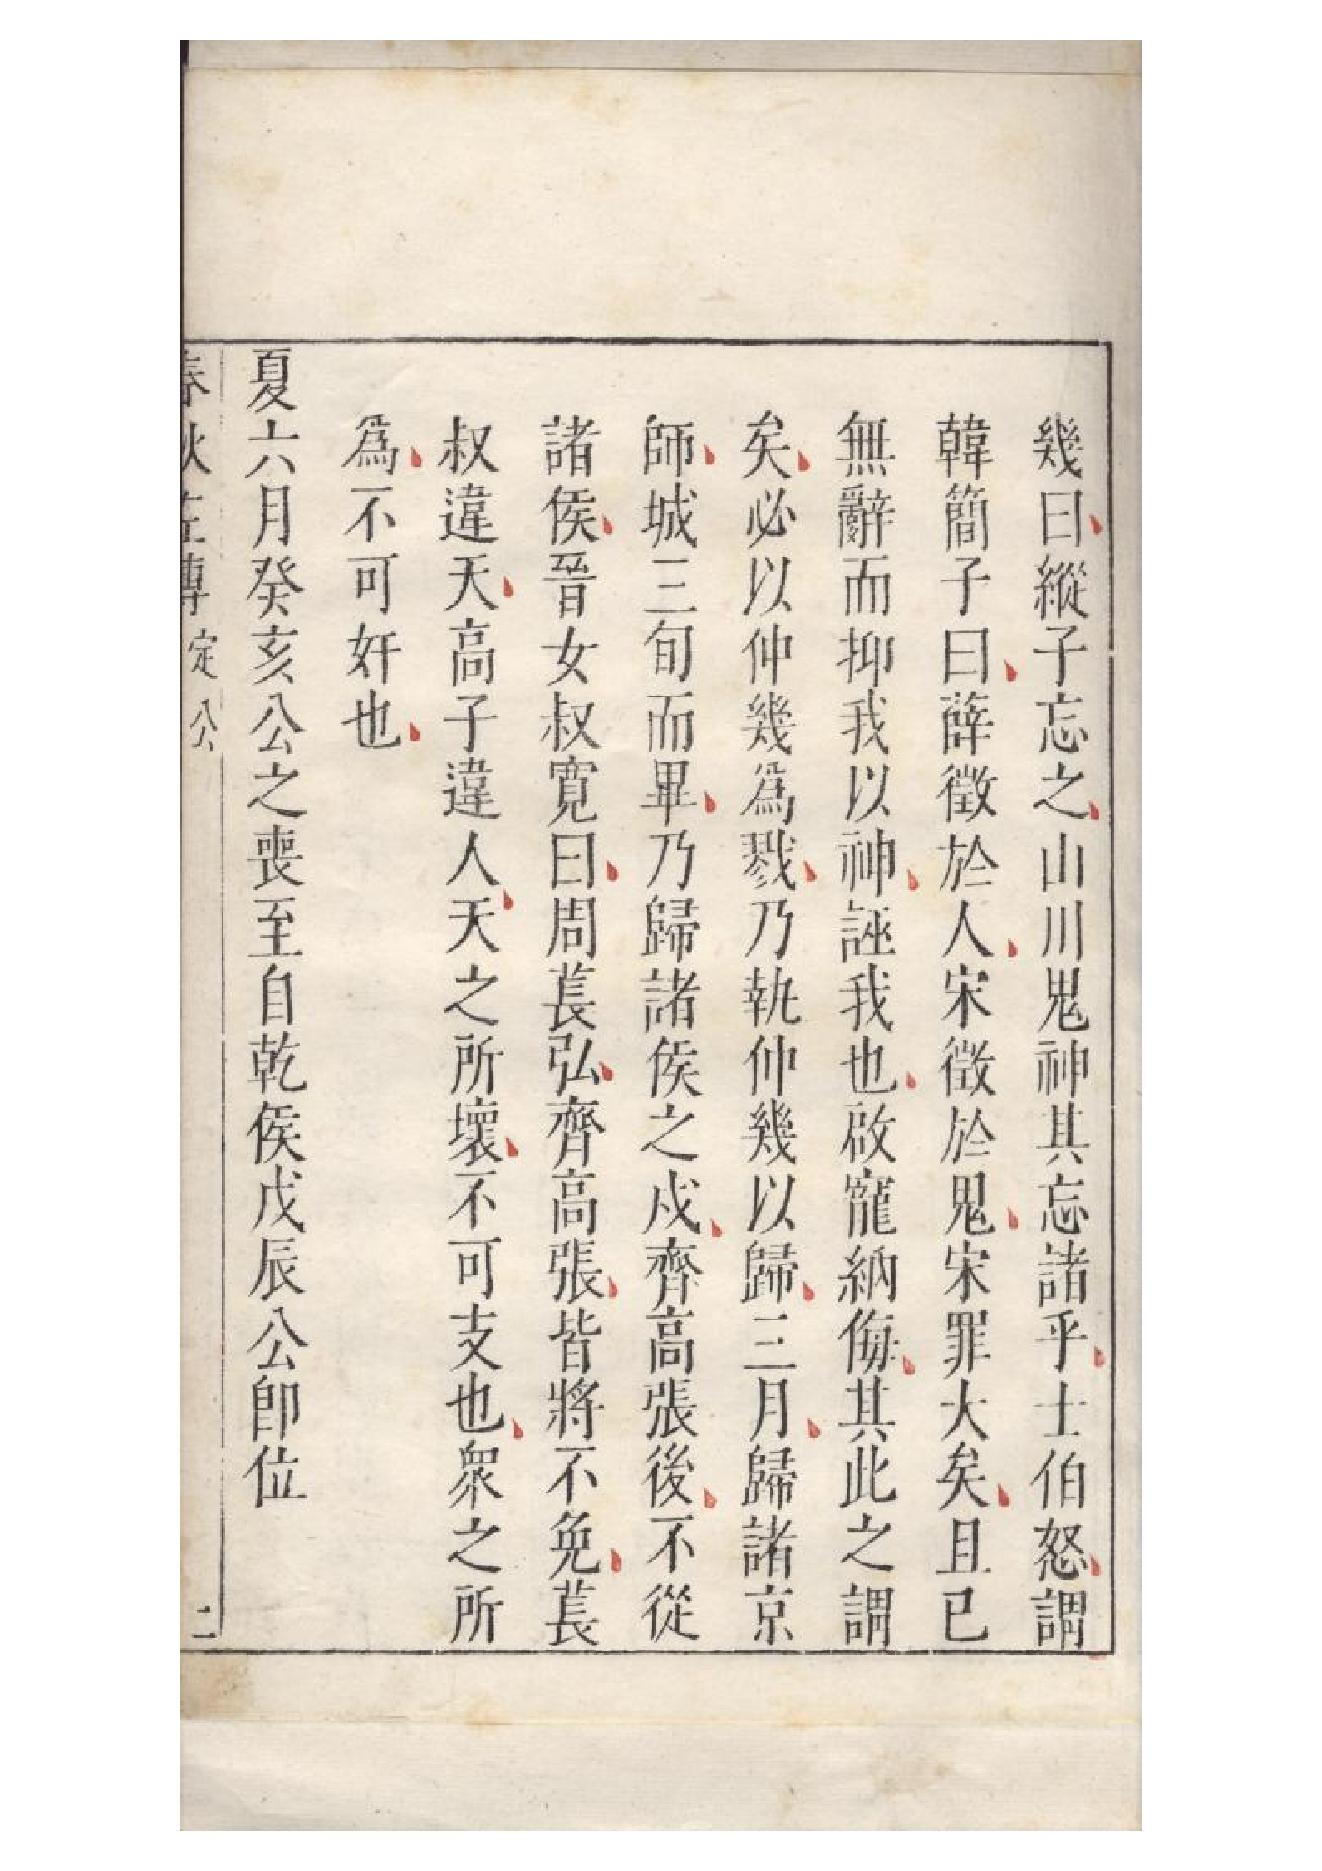 幾曰縱子忘之山川鬼神其忘諸乎士伯怒謂
韓簡子曰薛徵於人宋徵於鬼宋罪大矣且已
無辭而抑我以神誣我也啟寵納侮其此之謂
矣必以仲幾爲戮乃執仲幾以歸三月歸諸京
師城三旬而畢乃歸諸侯之戍齊高張後不從
諸侯晉女叔寬曰周萇弘齊高張皆將不免萇
叔違天高子違人天之所壞不可支也衆之所
爲不可奸也
夏六月癸亥公之喪至自乾侯戊辰公卽位
春秋左傳 定公 二